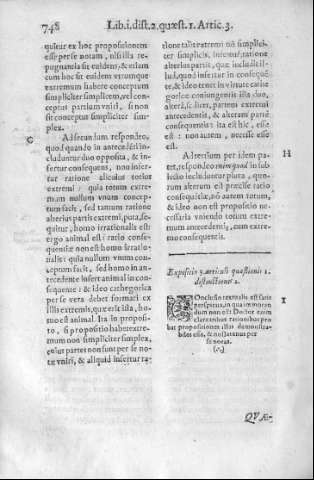 748 Lib.i.dist.2.quæst.1.Artic.3.
quitur ex hoc propositionem
esse per se notam, nisi illa re
pugnantia sit euidens, & etiam
cum hoc sit euidens vtrumque
extremum habere conceptum
simpliciter simplicem, vel con
ceptus partium vniri, si non
sit conceptus simpliciter sim-
plex.
C Ad secundum respondeo,
quod quando in antecedenti in-
cluduntur duo opposita, & in-
fertur consequens, non infer-
tur ratione alicuius totius
extremi: quia totum extre-
mum nullum vnum conceptum
facit, sed tantum ratione
alterius partis extremi, puta, se-
quitur, homo irrationalis est
ergo animal est: ratio conse-
quentiæ non est homo irratio-
nalis: quia nullum vnum concep-
tum facit, sed homo in an-
tecedente infert animal in con-
sequente: & ideo cathegorica
per se vera debet formari ex
illis extremis, quæ est ista, ho-
mo est animal. Ita in proposi-
to, si propositio habet extre-
mum non simpliciter simplex,
cuius partes non sunt per se no-
tæ vniri, & aliquid infertur ra-
tione talis extremi nõ simplici-
ter simplicis, infertur ratione
alterius partis, quæ includit il-
lud, quod infertur in consequẽ-
te, & ideo tenet in virtute cathe
goricæ coniungentis illa duo,
s. alterã, s. partem extremi
antecedentis, & alteram partẽ
consequentis: ita est hic, esse
est: non autem, necesse esse
est.
H Ad tertium per idem pa-
tet, respondeo enim quod in sub-
iecto includuntur plura, quo-
rum alterum est præcise ratio
consequẽtiæ, nõ autem totum,
& ideo non est propositio ne-
cessaria vniendo totum extre
mum antecedenti, cum extre-
mo consequentis.
Expositio 3. articuli quæstionis 1.
distinctionis 2.
I COnclusio textualis est satis
perspicua, in qua immorandum
non est Doctor enim
claris tribus rationibus pro
bat propositionem istã demonstra-
bilem esse, & non tantum per
se notã.
(∴)
QVÆ-